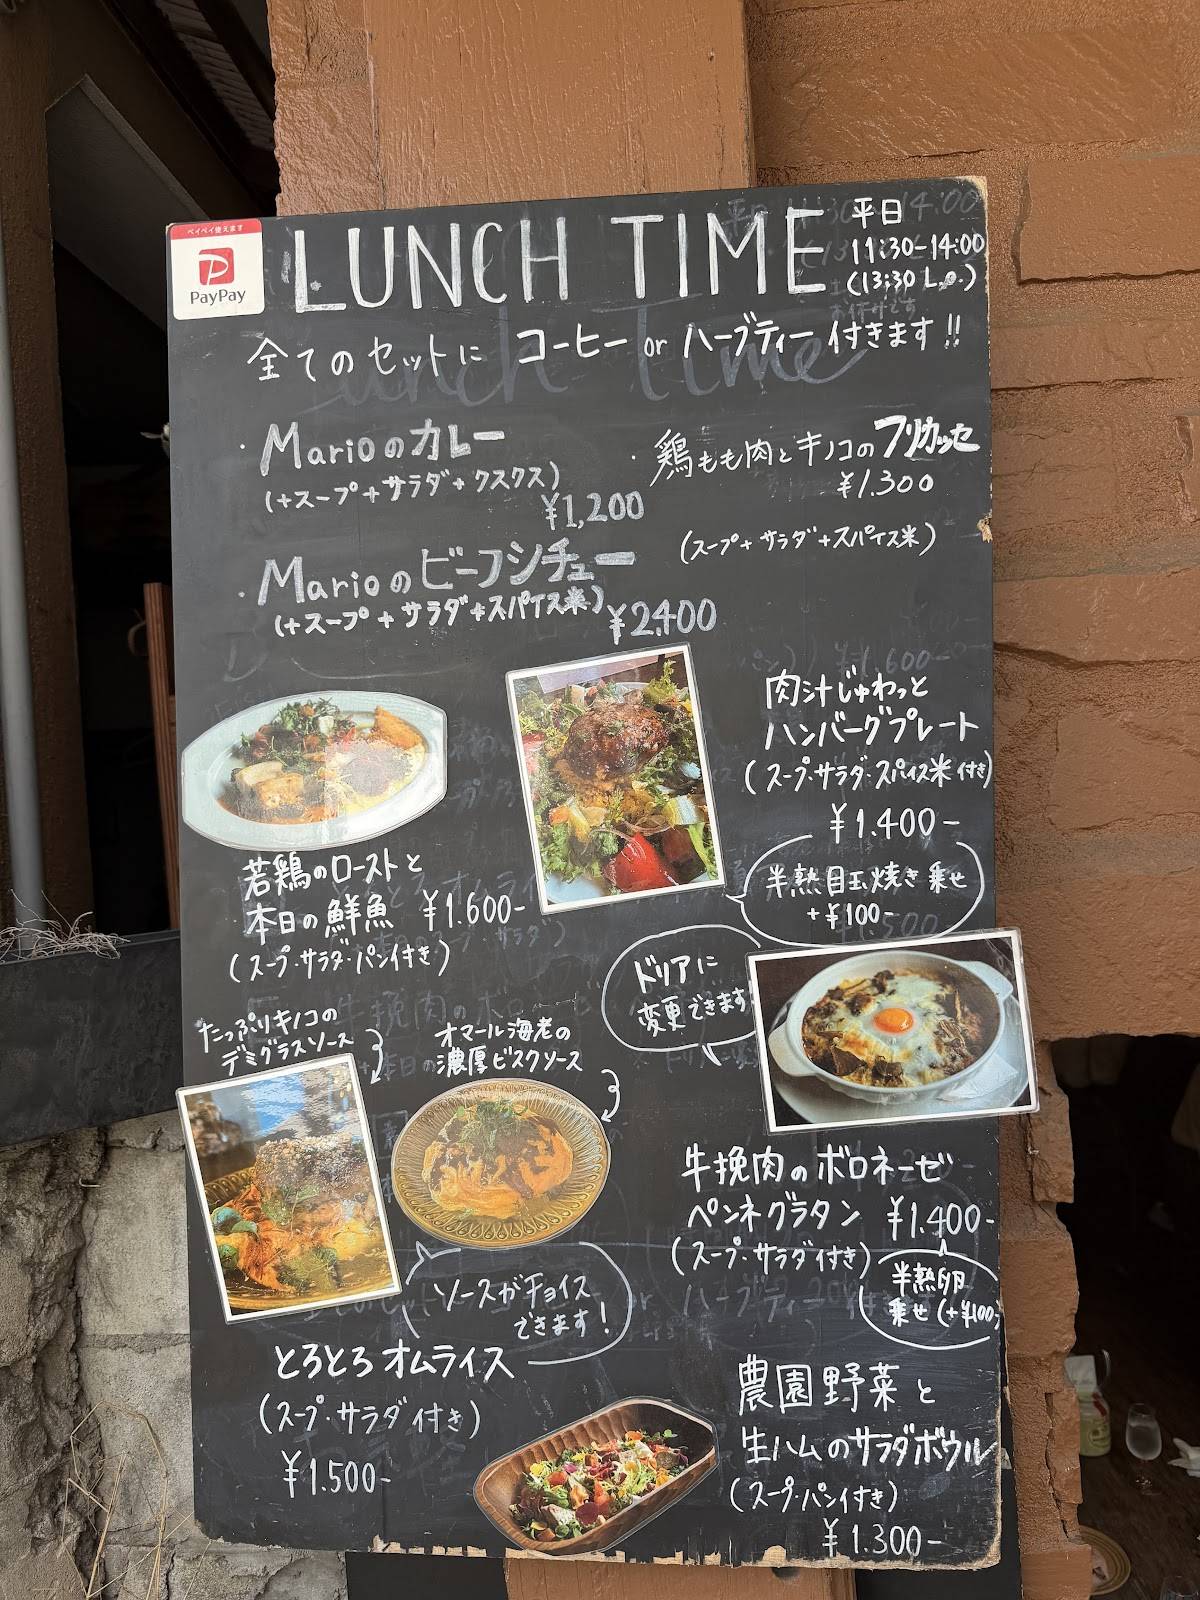 ペイペイ使えます
PayPay
LUNCH TIME
平日
11:30-14:00
(13:30 L.O.)
全てのセットに コーヒー or ハーブティー 付きます!!
・Marioのカレー
(+スープ+サラダ+クスクス)
¥1,200
・鶏もも肉とキノコのフリカッセ
¥1.300
(スープ+サラダ+スパイス米)
・Marioのビーフシチュー
(+スープ+サラダ+スパイス米)
¥2.400
肉汁じゅわっと
ハンバーグプレート
(スープ・サラダ・スパイス米付き)
¥1.400-
半熟目玉焼き乗せ
+¥100-
若鶏のローストと
本日の鮮魚 ¥1.600-
(スープ・サラダ・パン付き)
ドリアに
変更できます
たっぷりキノコの
デミグラスソース
オマール海老の
濃厚ビスクソース
牛挽肉のボロネーゼ
ペンネグラタン ¥1.400-
(スープ・サラダ付き)
半熟卵
乗せ(+¥100)
ソースがチョイス
できます!
とろとろオムライス
(スープ・サラダ付き)
¥1.500-
農園野菜と
生ハムのサラダボウル
(スープ・パン付き)
¥1.300-